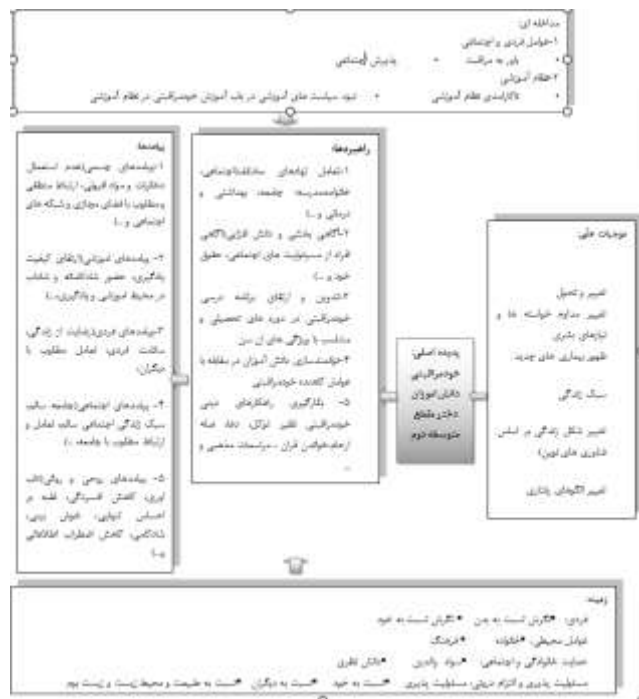 مداخله ای:
۱-عوامل فردی و اجتماعی
• باور به مراقبت • پذیرش اجتماعی
۲-نظام آموزشی
• ناکارامدی نظام آموزشی • نبود سیاست های آموزشی در باب آموزش خودمراقبتی در نظام آموزشی
موجبات علّی:
تغییر و تحول
تغییر مداوم خواسته ها و
نیازهای بشری
ظهور بیماری های جدید
سبک زندگی
تغییر شکل زندگی بر اساس
فناوری های نوین)
تغییر الگوهای رفتاری
پدیده اصلی:
خودمراقبتی
دانش اموزان
دختر مقطع
متوسطه دوم
راهبردها:
۱-تعامل نهادهای مختلف(اجتماعی،
خانواده،مدرسه، جامعه، بهداشتی و
درمانی و...)
۲-آگاهی بخشی و دانش افزایی(آگاهی
افراد از مسئولیت های اجتماعی، حقوق
خود و ...)
۳-تدوین و ارتقای برنامه درسی
خودمراقبتی در دوره های تحصیلی و
متناسب با ویژگی های ان سن
۴-توانمندسازی دانش آموزان در مقابله با
عوامل کاهنده خودمراقبتی
۵- بکارگیری راهکارهای دینی
خودمراقبتی نظیر توکل، دعا، صله
ارحام،خواندن قران ، مراسمات مذهبی و
...
پیامدها:
۱-پیامدهای جسمی(عدم استعمال
دخانیات و مواد افیونی، ارتباط منطقی
ومطلوب با فضای مجازی و شبکه های
اجتماعی و ...)
۲- پیامدهای اموزشی(ارتقای کیفیت
یادگیری، حضور و شاداب
در محیط اموزشی و یادگیری،...)
۳-پیامدهای فردی(رضایت از زندگی،
سلامت فردی، تعامل مطلوب با
دیگران)
۴- پیامدهای اجتماعی(جامعه سالم،
سبک زندگی اجتماعی سالم، تعامل و
ارتباط مطلوب با جامعه، ...)
۵- پیامدهای روحی و روانی(تاب
اوری، کاهش افسردگی، غلبه بر
احساس تنهایی، خوش بینی،
شادکامی، کاهش اضطراب
و...)
زمینه:
فردی: •نگرش نسبت به بدن •نگرش نسبت به خود
عوامل محیطی: •خانواده •فرهنگ
حمایت خانوادگی و اجتماعی: •سواد والدین •دانش نظری
مسئولیت پذیری و التزام درونی: مسئولیت پذیری •نسبت به خود •نسبت به دیگران •نسبت به طبیعت و محیط زیست و زیست بوم